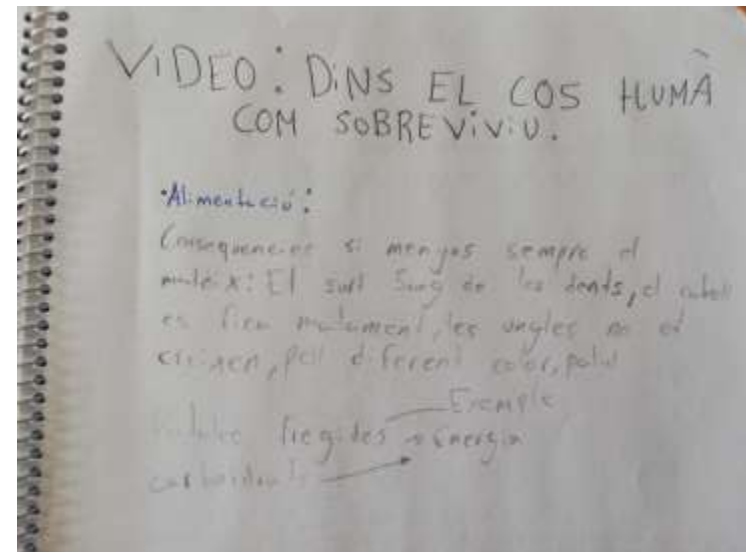 VIDEO: DINS EL COS HUMÀ
COM SOBREVIVIU.
·Alimentació:
Consequencies si menjas sempre el
mateix: El surt Sang de les dents, el cabell
es fica malament, les ungles no et
creixen, pell diferent color, palid
Exemple
fregides Energia
carboidrats